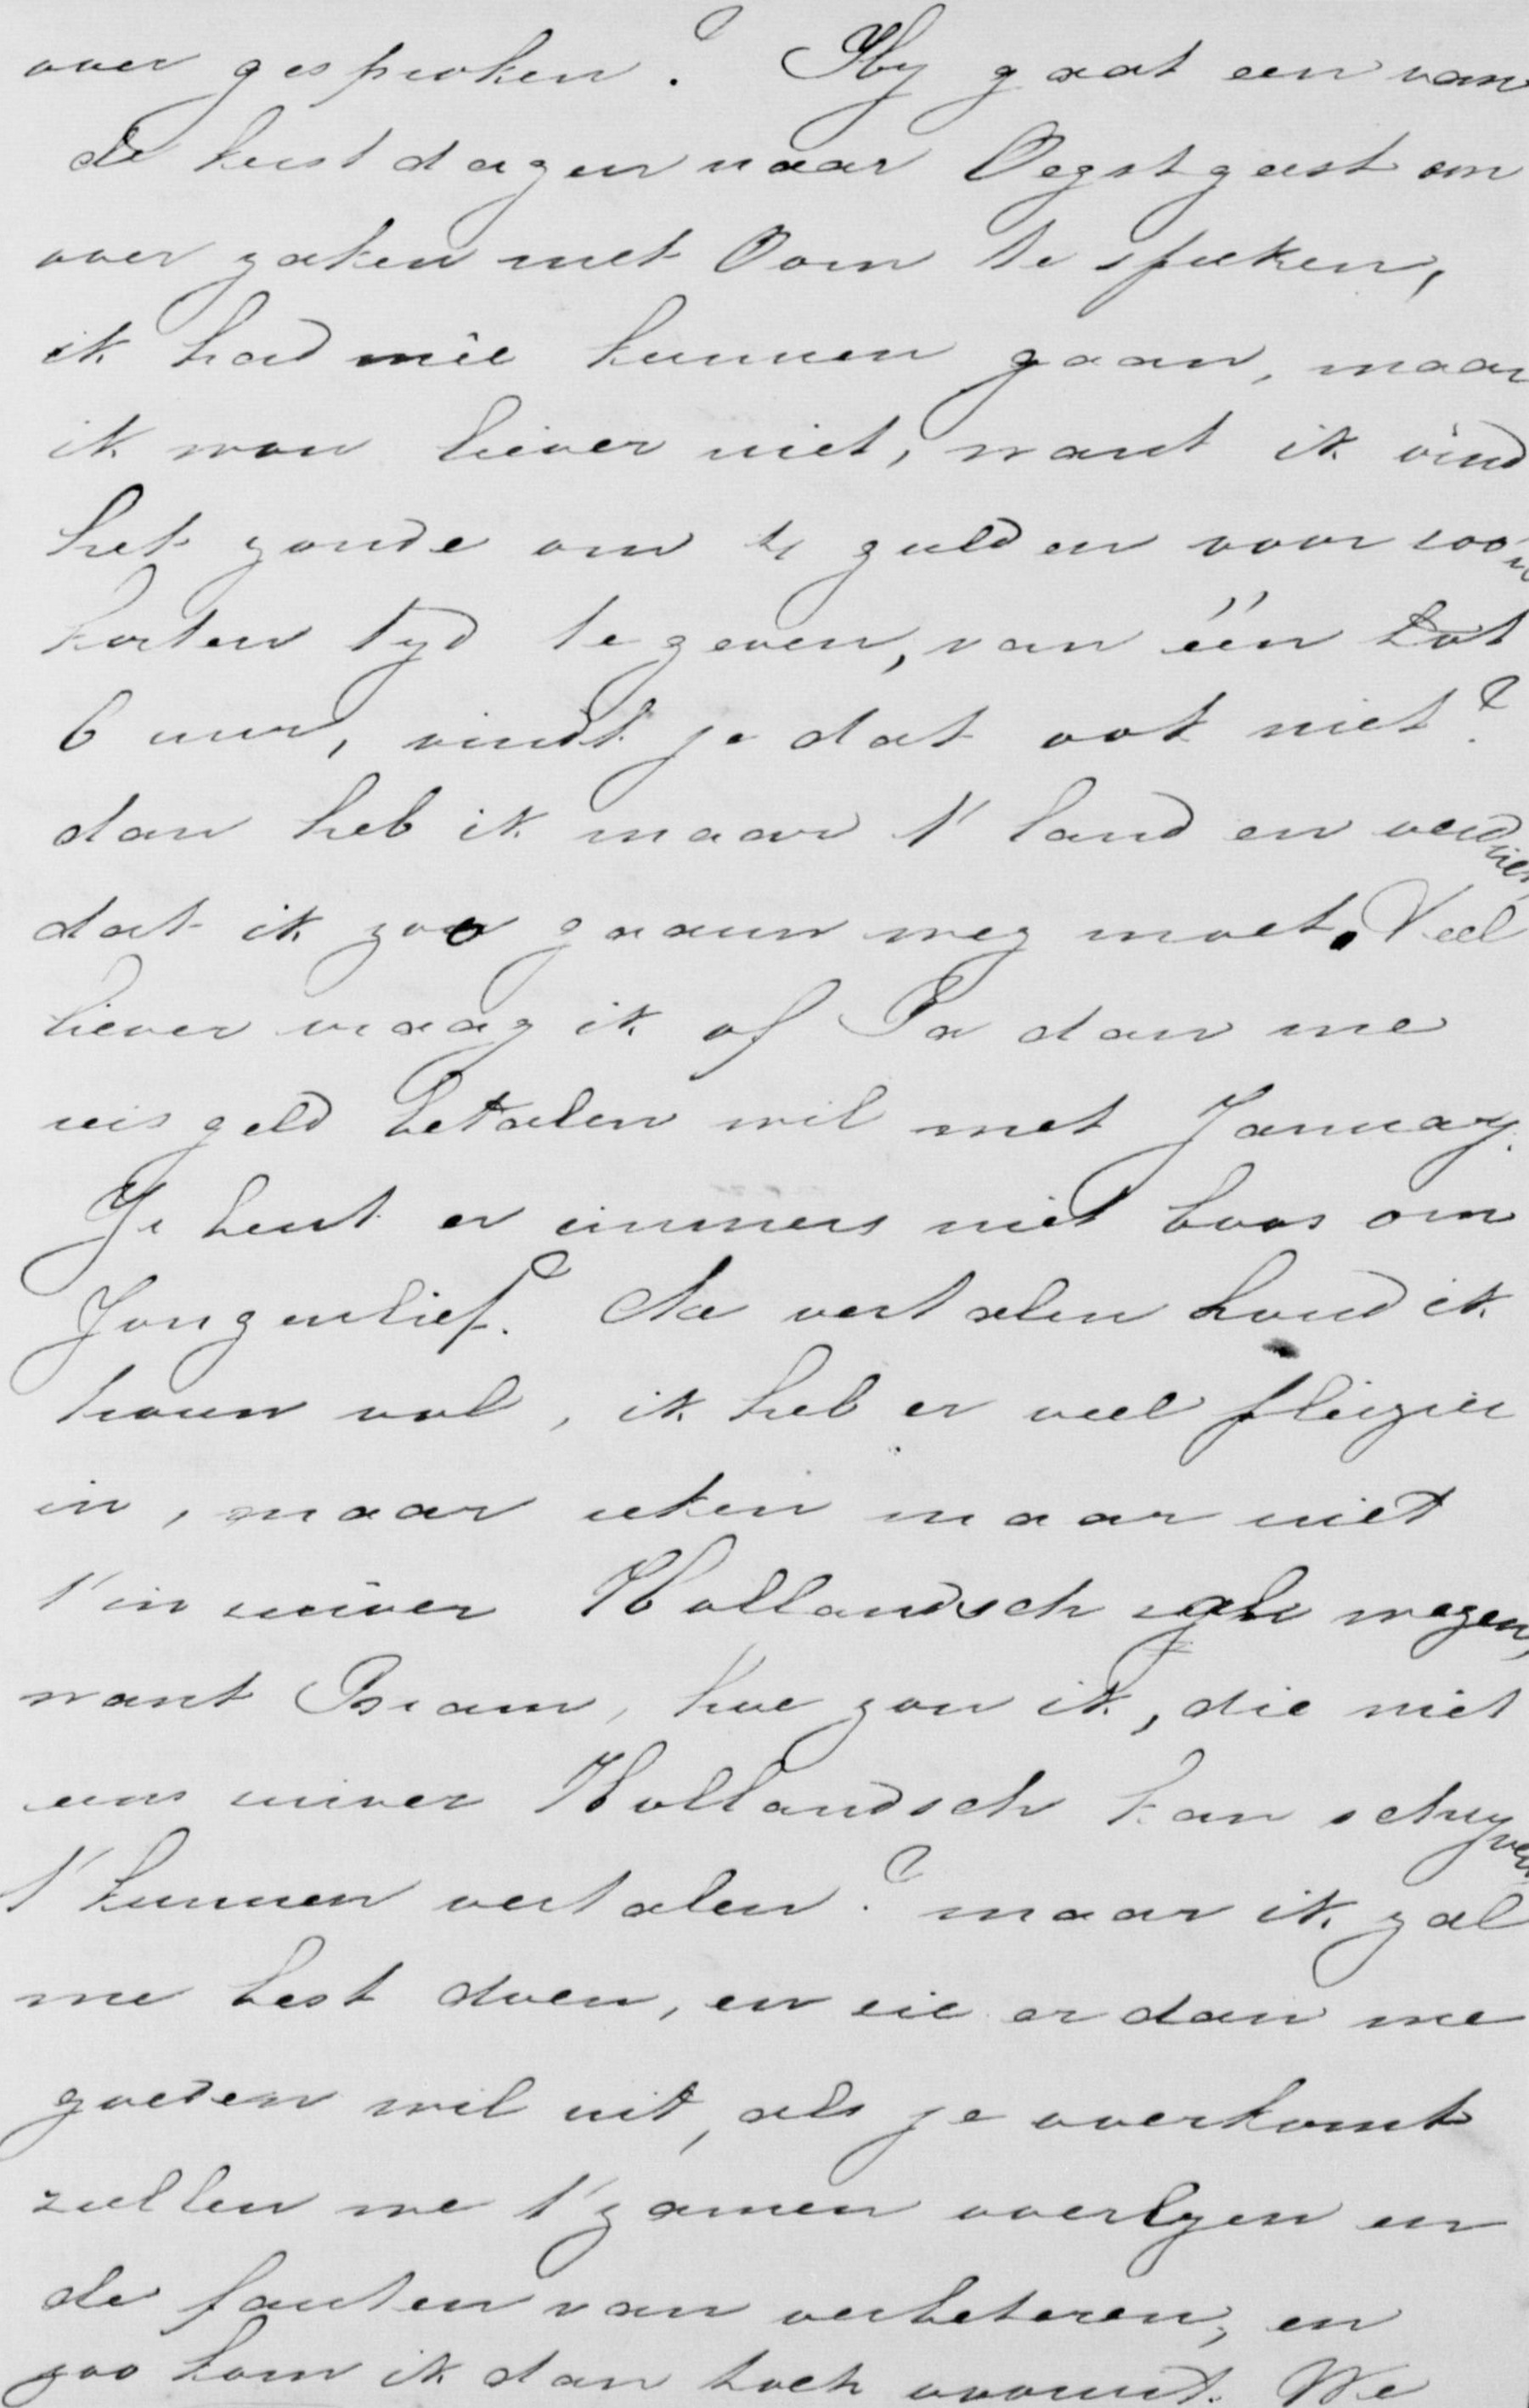 over gesproken? Hy gaat een van
de kerstdagen naar Oegstgeest om
over zaken met Oom te spreken,
ik had mêe kunnen gaan, maar
ik wou liever niet, want ik vind
het zonde om 4 gulden voor zoo'n
korten tyd te geven, van één tot
6 uur, vindt je dat ook niet?
dan heb ik maar t' land en verdriet
dat ik zoo gaauw weg moet. Veel
liever vraag ik of Pa dan me
reisgeld betalen wil met January.
Je bent er immers niet boos om
Jongenlief? Na vertalen houd ik
trouw vol, ik heb er veel plezier
in, maar reken maar niet
t' in zuiver Hollandsch zal wezen,
want Bram, hoe zou ik, die niet
eens zuiver Hollandsch kan schryven
t' kunnen vertalen? maar ik zal
me best doen, en zie er dan me
goeden wil uit, als je overkomt
zullen we t' zamen overlezen en
de fouten van verbeteren, en
zoo kom ik dan toch vooruit. We